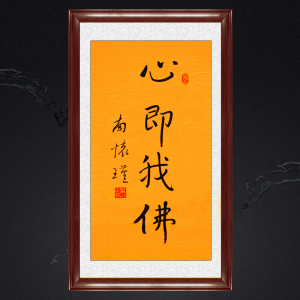 心即我佛
南懷瑾